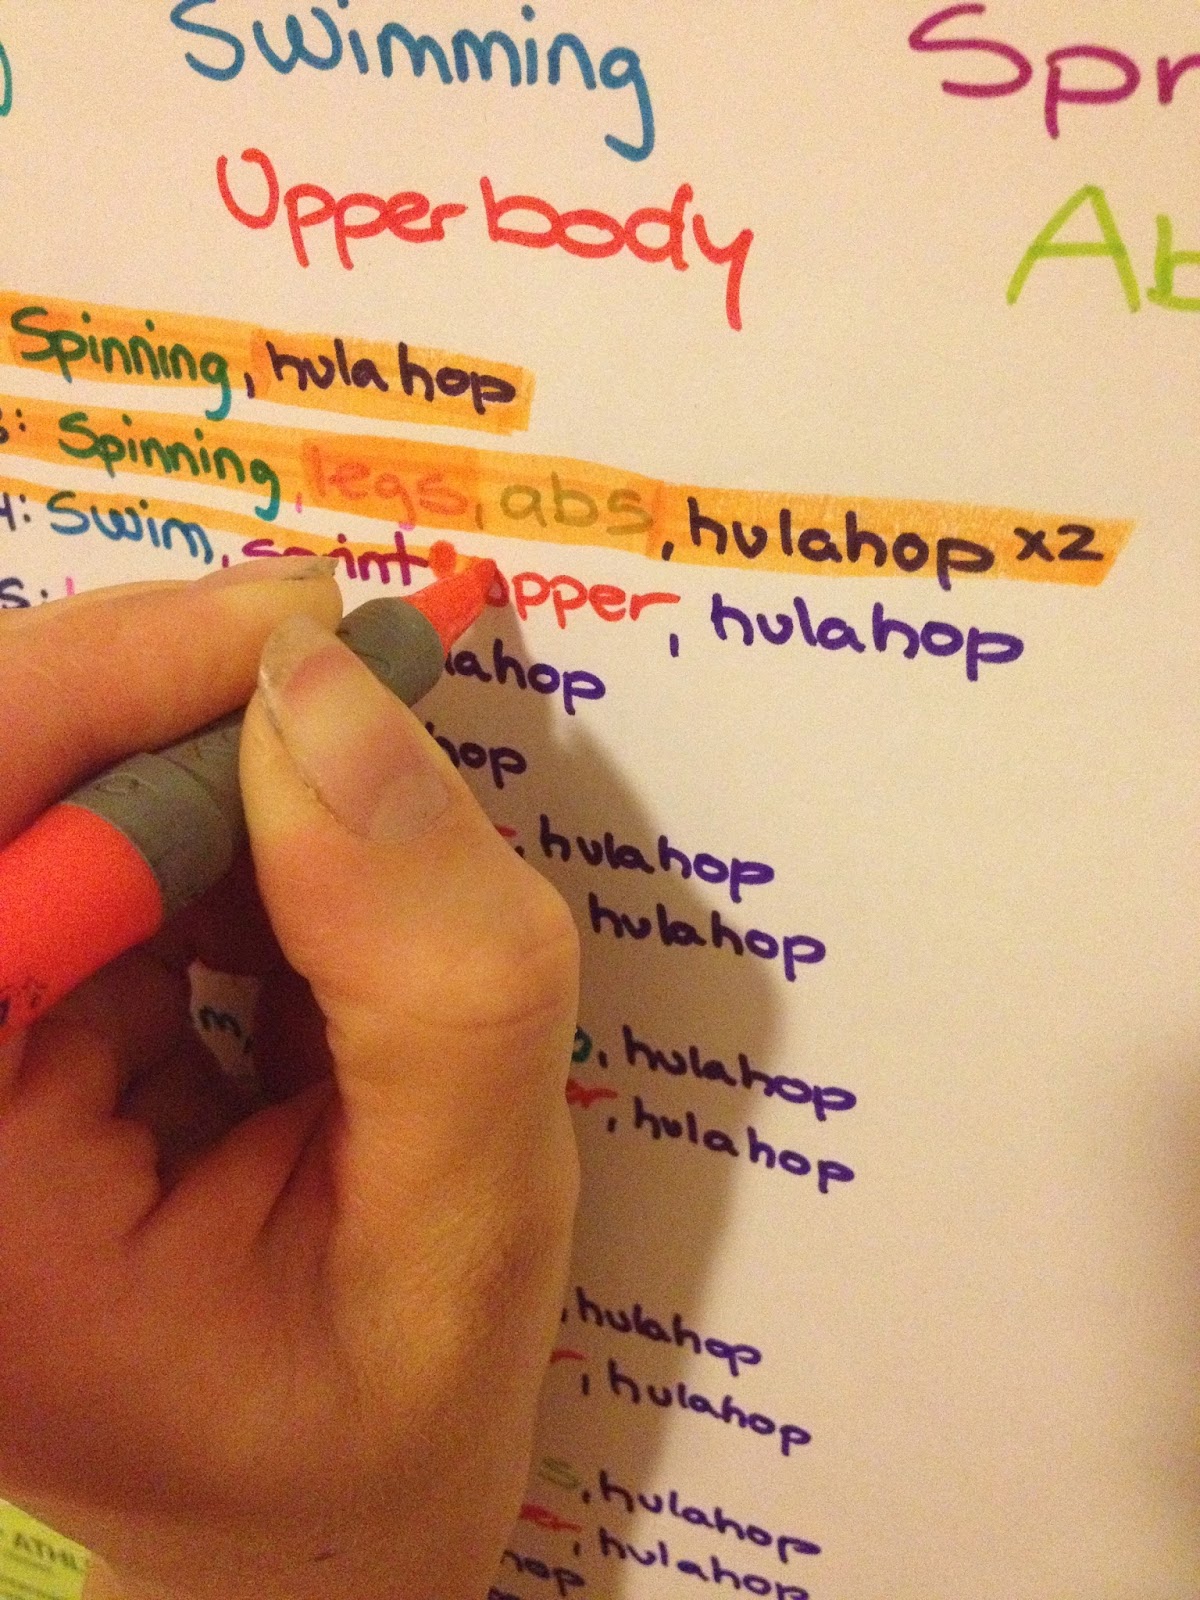 Swimming
Upperbody
Spinning, hulahop
3: Spinning, legs, abs, hulahop x2
4: Swim, sprint upper, hulahop
5:
hulahop
, hulahop
hulahop
, hulahop
, hulahop
, hulahop
, hulahop
, hulahop
, hulahop